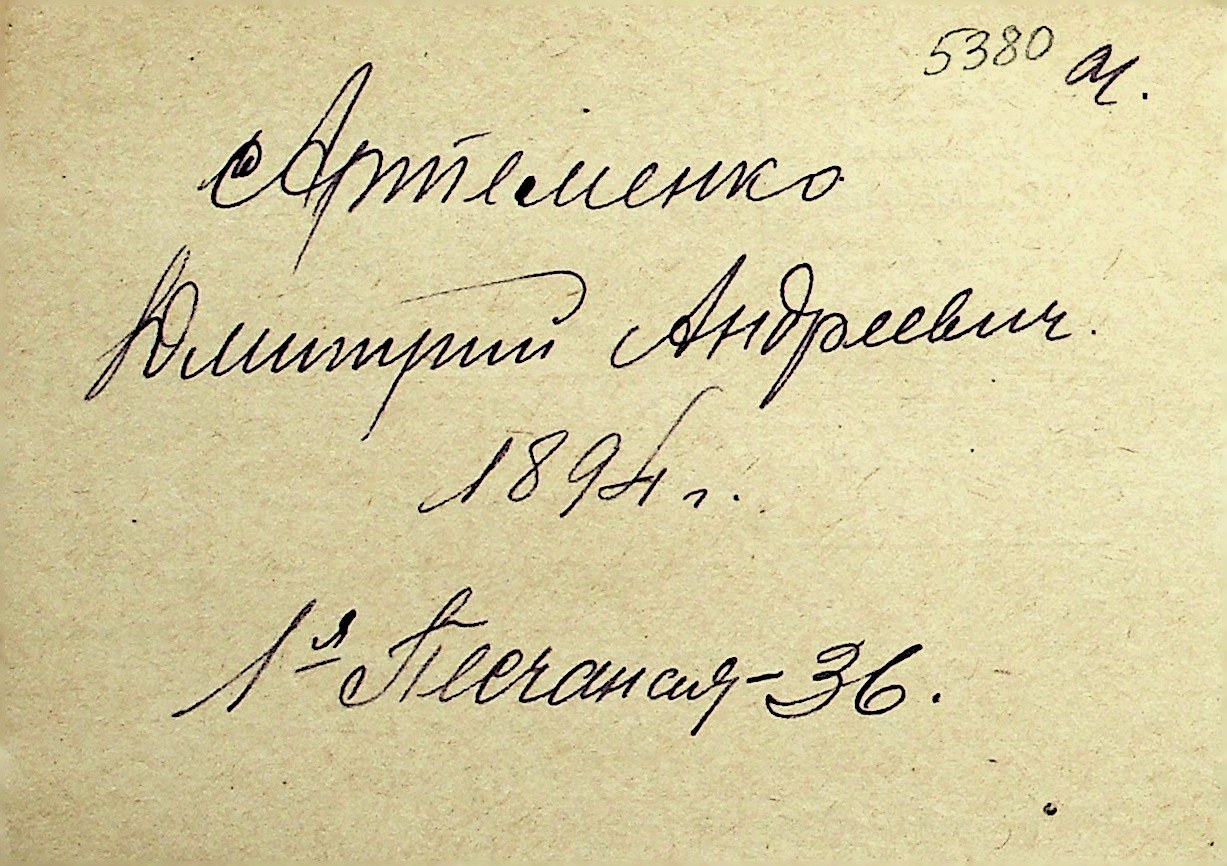 5380 а.
Артеменко
Дмитрий Андреевич.
1894 г.
1я Песчаная-36.